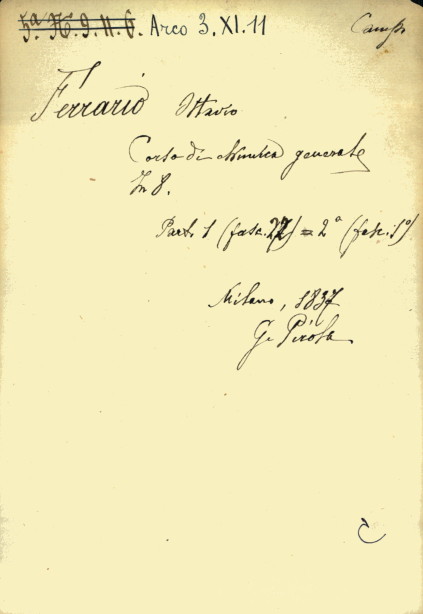 5ª. H. 9. 11. 6. Arco 3. XI. 11
Ferrario Ottavio
Corso di Chimica generale
In 8.
Parte 1 (fasc. 22) = 2ª (fasc. 1º)
Milano, 1837
G. Pirola
C